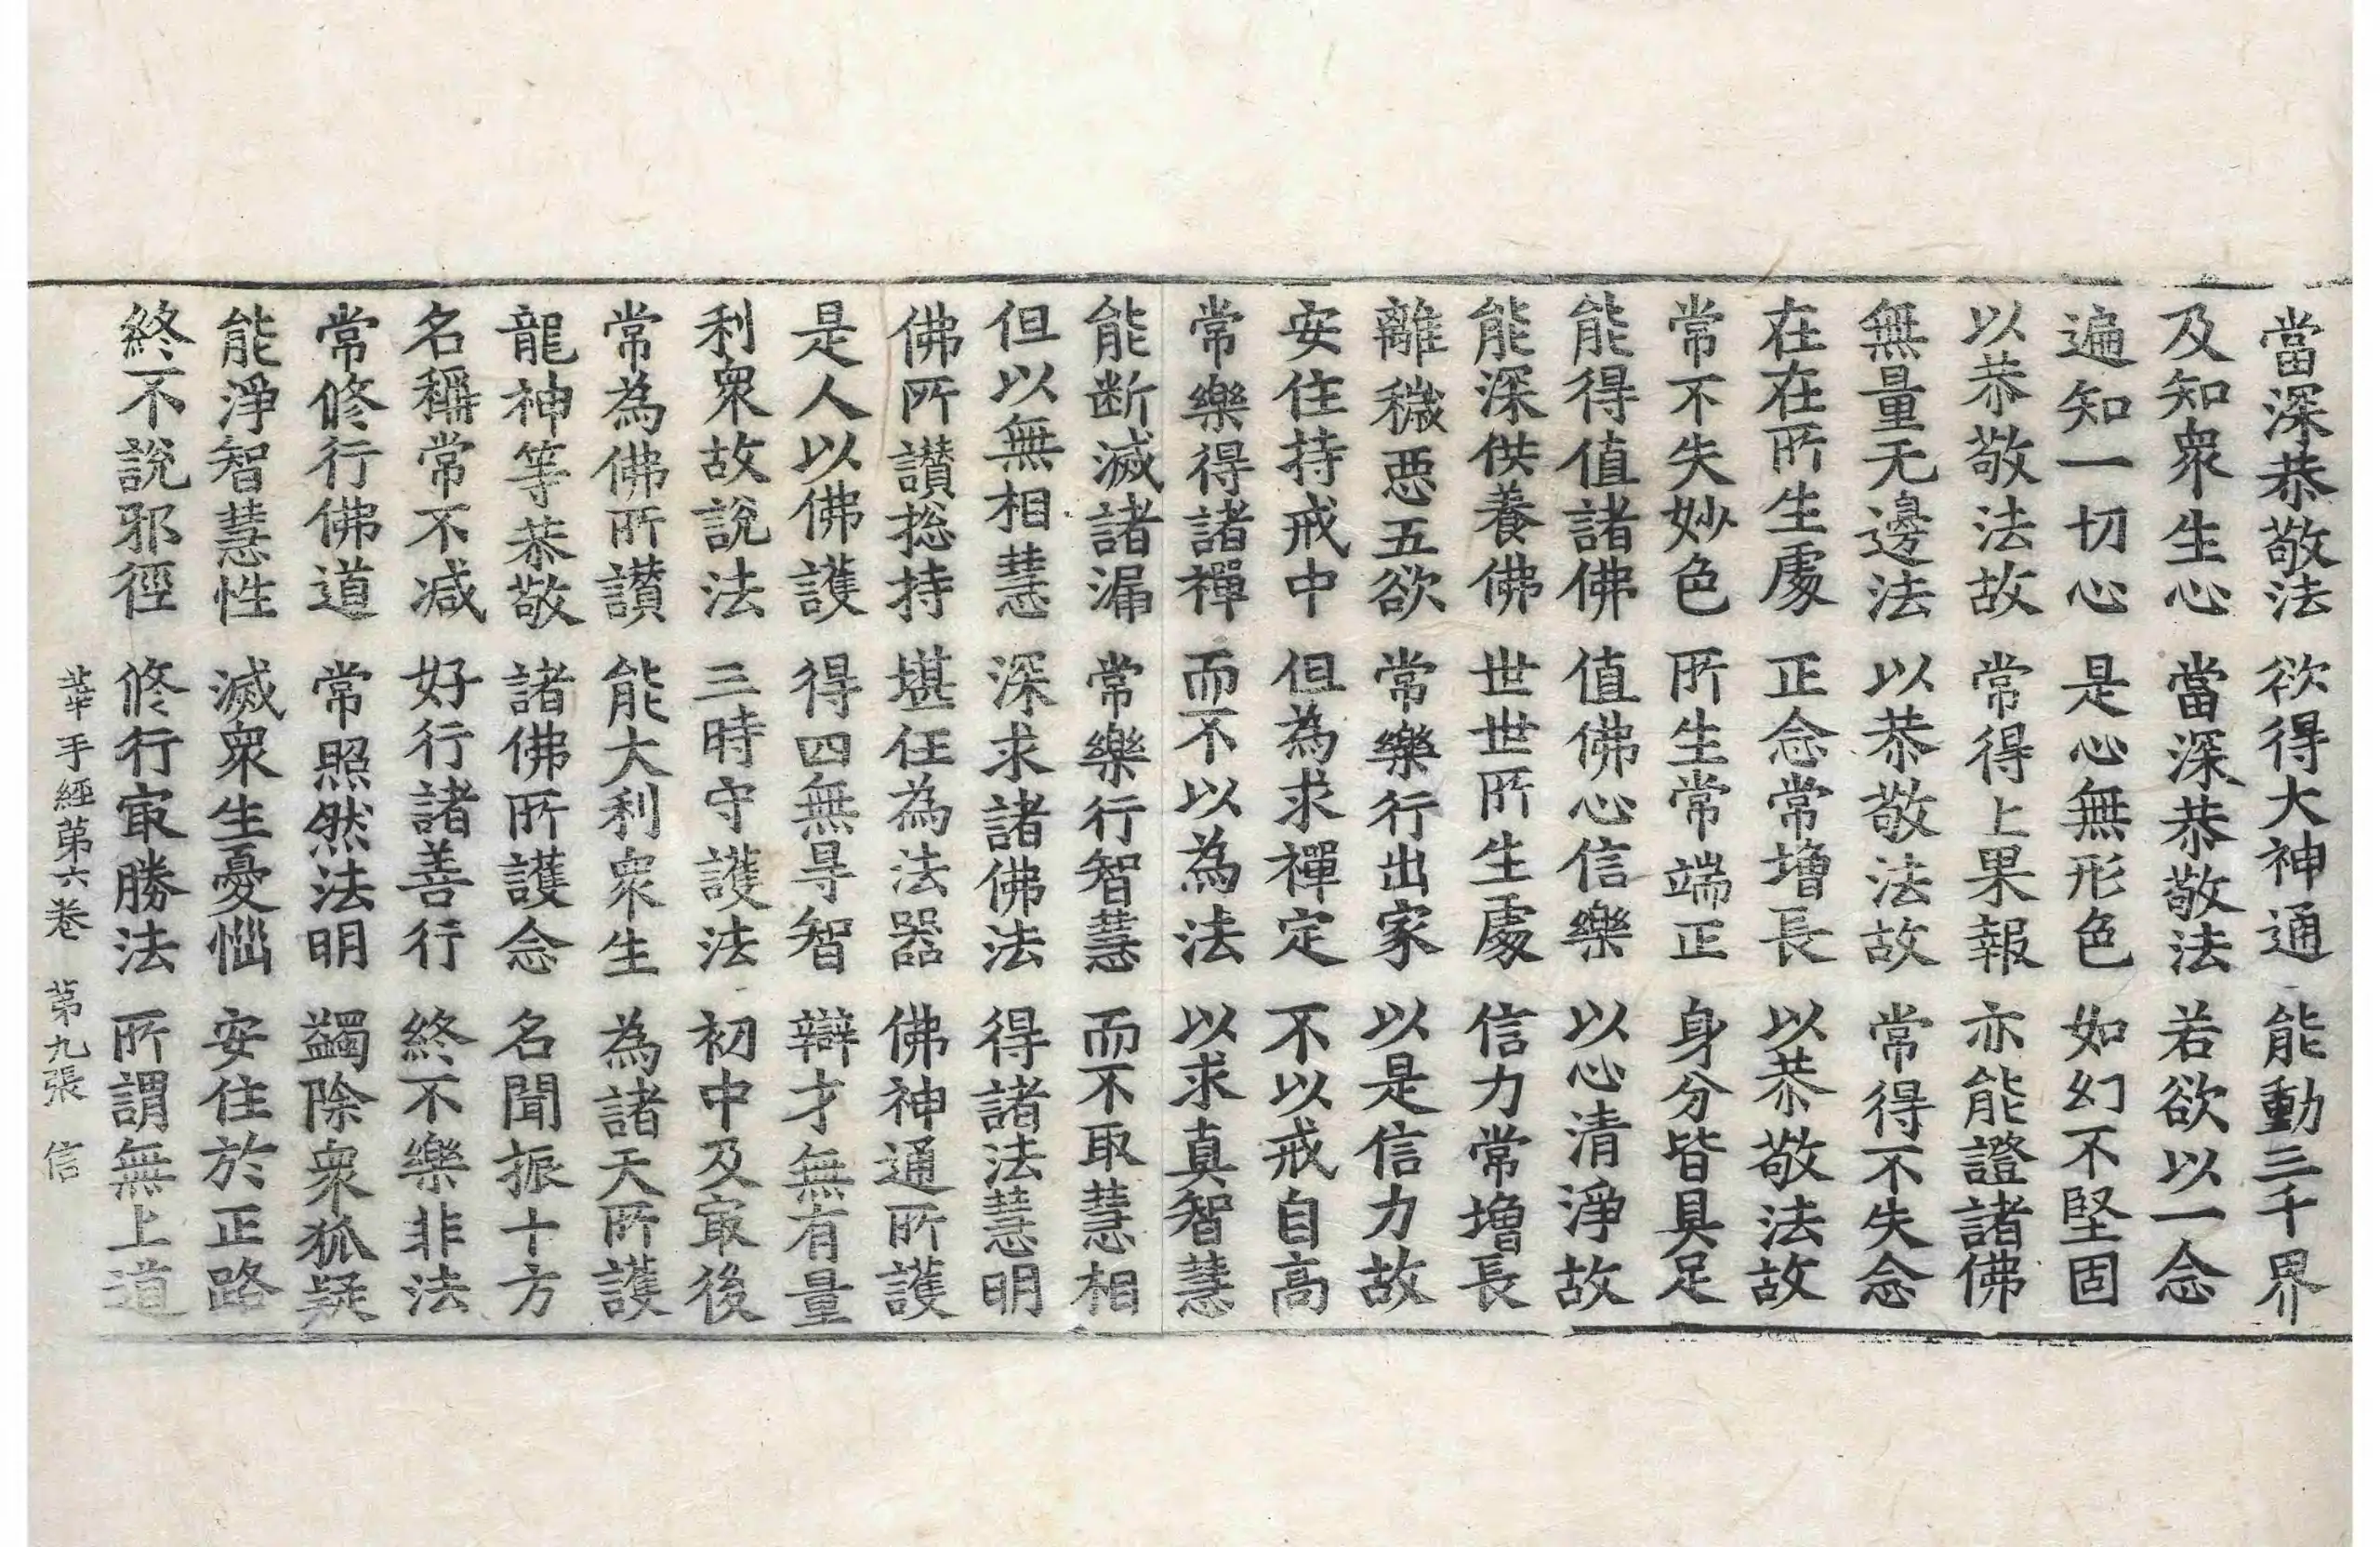 當深恭敬法 欲得大神通 能動三千界
及知衆生心 當深恭敬法 若欲以一念
遍知一切心 是心無形色 如幻不堅固
以恭敬法故 常得上果報 亦能證諸佛
無量无邊法 以恭敬法故 常得不失念
在在所生處 正念常増長 以恭敬法故
常不失妙色 所生常端正 身分皆具足
能得值諸佛 值佛心信樂 以心清淨故
能深供養佛 世世所生處 信力常増長
離穢惡五欲 常樂行出家 以是信力故
安住持戒中 但為求禪定 不以戒自高
常樂得諸禪 而不以為法 以求真智慧
能断滅諸漏 常樂行智慧 而不取慧相
但以無相慧 深求諸佛法 得諸法慧明
佛所讃捴持 堪任為法器 佛神通所護
是人以佛護 得四無㝵智 辯才無有量
利衆故説法 三時守護法 初中及㝡後
常為佛所讃 能大利衆生 為諸天所護
龍神等恭敬 諸佛所護念 名聞振十方
名稱常不减 好行諸善行 終不樂非法
常修行佛道 常照然法明 蠲除衆狐疑
能淨智慧性 滅衆生憂惱 安住於正路
終不説邪徑 修行㝡勝法 所謂無上道
華手經第六卷 第九張 信